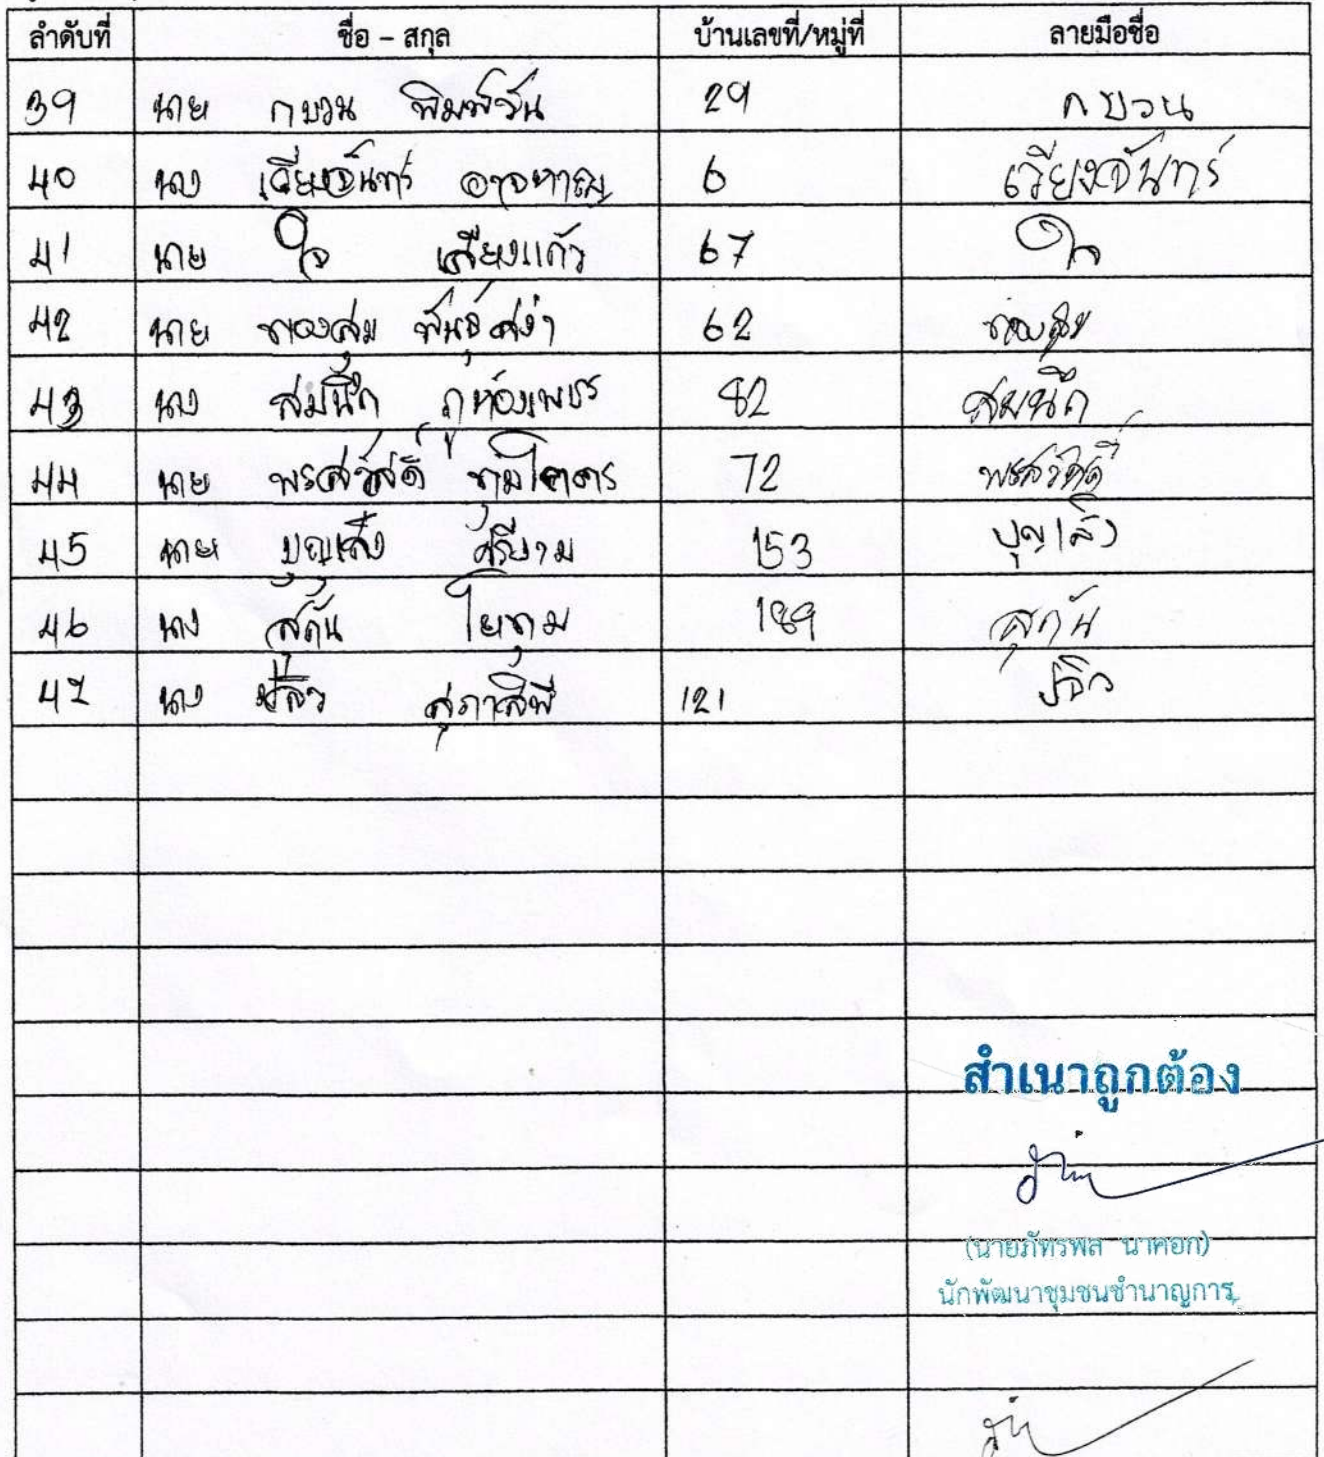 ลำดับที่ ชื่อ – สกุล บ้านเลขที่/หมู่ที่ ลายมือชื่อ
39 นาย กบวน พิมพ์จันทร์ 29 กบวน
40 นาง เวียงจันทร์ อาจหาญ 6 เวียงจันทร์
41 นาย ใจ เสียงแก้ว 67 ใจ
42 นาย ทองสุม พันธุ์สง่า 62
43 นาง สมนึก ภูทองเพชร 82 สมนึก
44 นาย พรสวัสดิ์ 72 พรสวัสดิ์
45 นาย บุญเส็ง ศรียาม 153 บุญเส็ง
46 นาง สุดัน 189 สุดัน
47 นาง 121
สำเนาถูกต้อง
(นายภัทรพล นาคอก)
นักพัฒนาชุมชนชำนาญการ